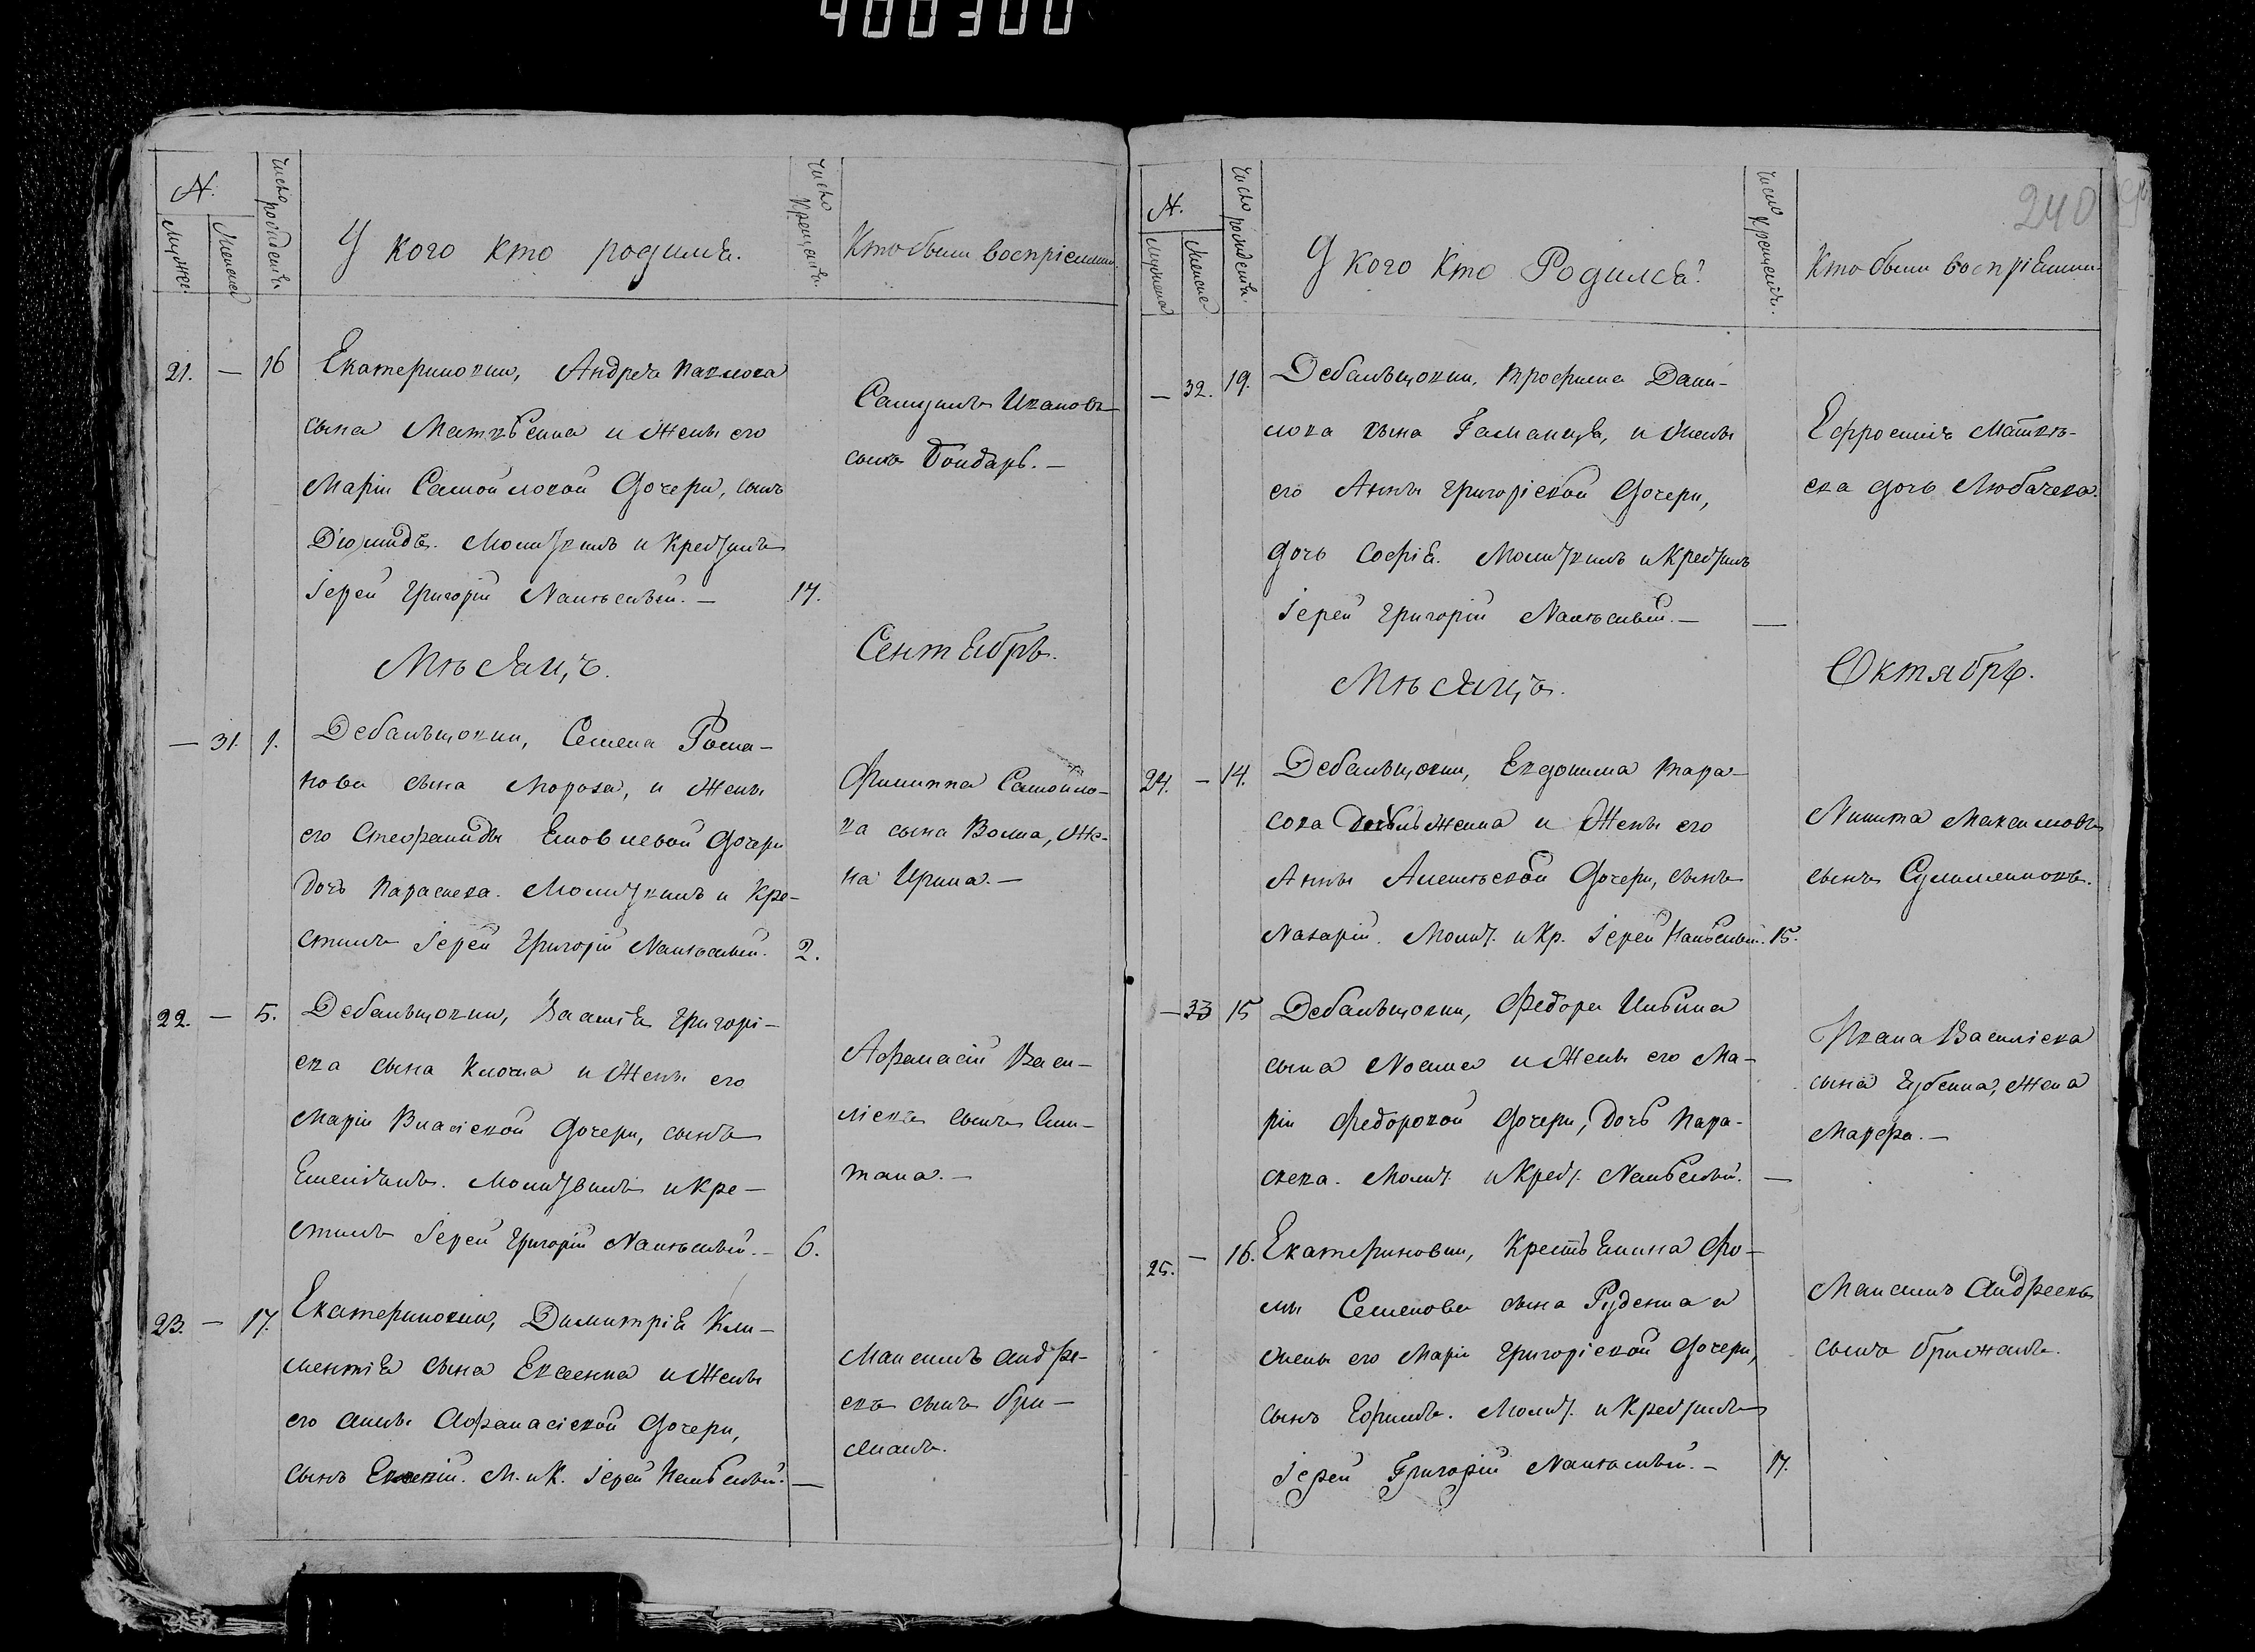 400300
N.
Мужес.
Женска
Число рожденія
У кого кто родился.
Число Крещенія
Кто были воспріемни.
21. — 16 Екатериновки, Андрея Павлова
сына Матвѣенка и Жены его
Маріи Самойловой Дочери, сынъ
Діомидъ. Молитвилъ и Крестилъ
Іерей Григорій 17.
Самуилъ Ивановъ
сынъ Бондарь. —
Мѣсяцъ. Сентябрь.
— 31. 1. Дебальцовки, Семена Рома-
нова сына Мороза, и Жены
его Стефаниды Яковлевой Дочери
Дочь Параскева. Молитвилъ и Кре-
стилъ Іерей Григорій 2.
Филиппа Самойло-
ва сына Волка, Же-
на Ирина. —
22. — 5. Дебальцовки, Власія Григорі-
ева сына Клочка и Жены его
Маріи Власіевой Дочери, сынъ
Емеліянъ. Молитвилъ и Кре-
стилъ Іерей Григорій — 6.
Афанасій Васи-
ліевъ сынъ
23. — 17. Екатериновки, Димитрія Кли-
ментія сына Евсеенка и Жены
его Анны Афанасіевой Дочери,
сынъ М. и К. Іерей —
Максимъ Андре-
евъ сынъ
240
N.
Мужеска
Женске
Число рожденія.
У кого кто Родился?
Число Крещенія.
Кто были воспріемни-
— 32. 19. Дебальцовки, Трофима Дани-
лова сына и Жены
его Анны Григоріевой Дочери,
Дочь Софія. Молитвилъ и Крестилъ
Іерей Григорій — —
Ефросинія Матвѣ-
ева дочь Любачева.
Мѣсяцъ. Октябрь.
24. — 14. Дебальцовки, Евдокима Тара-
сова и Жены его
Анны Алексѣевой Дочери, сынъ
Назарій. Молит. и Кр. Іерей 15.
Никита Максимовъ
сынъ
— 33 15 Дебальцовки, Федора
сына и Жены его Ма-
ріи Федоровой Дочери, Дочь Пара-
скева. Молит. и Крест. —
Ивана Василіева
сына Губенка, Жена
Марфа. —
25. — 16. Екатериновки, Крестьянина Фо-
мы Семенова сына Руденка и
Жены его Маріи Григоріевой Дочери,
сынъ Ефимъ. Молит. и Крестилъ
Іерей Григорій — 17.
Максимъ Андреевъ
сынъ